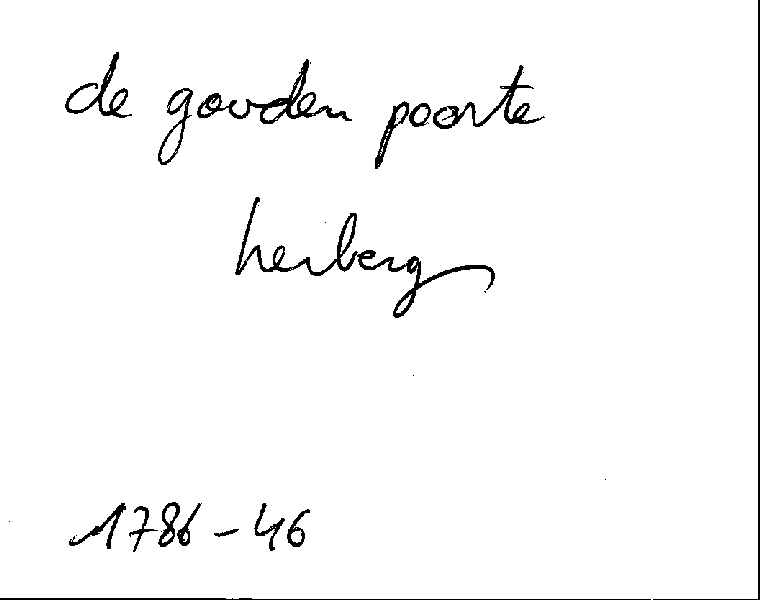 de gouden poorte
herberg
1786-46